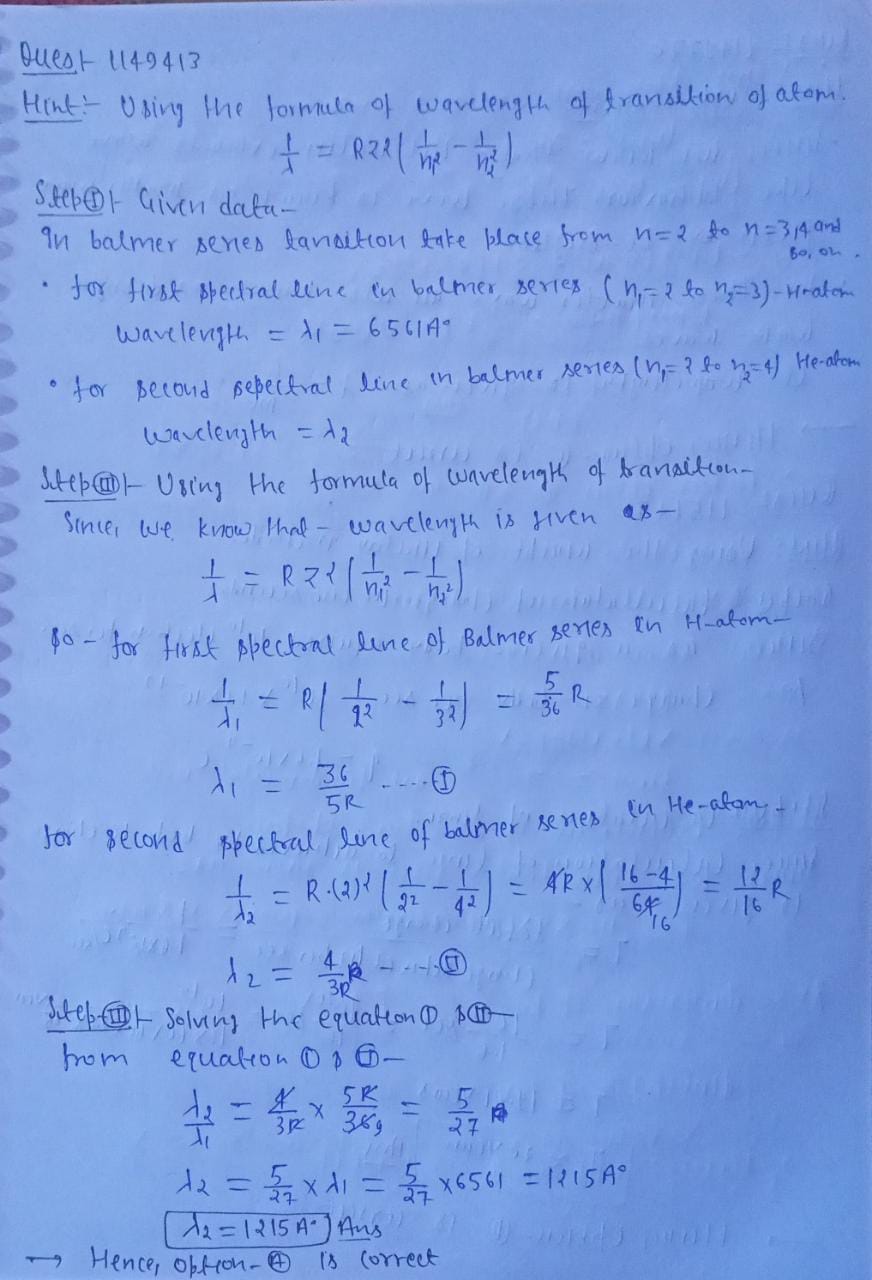 Quest 1149413
Hint:- Using the formula of wavelength of transition of atom.
1/λ = RZ²(1/n₁² - 1/n₂²)
Step(I)- Given data-
In balmer series tansition take place from n=2 to n=3,4 and so, on.
• for first spectral line in balmer series (n₁=2 to n₂=3)-H-atom
wavelength = λ₁ = 6561A°
• for second sepectral line in balmer series (n₁=2 to n₂=4) He-atom
wavelength = λ₂
Step(II)- Using the formula of wavelength of transition-
Since, we know that - wavelength is given as-
1/λ = RZ²(1/n₁² - 1/n₂²)
So - for first spectral line of Balmer series in H-atom-
1/λ₁ = R(1/2² - 1/3²) = 5/36 R
λ₁ = 36/5R ----(I)
for second spectral line of balmer series in He-atom-
1/λ₂ = R.(2)²(1/2² - 1/4²) = 4R×(16-4/64 16) = 12/16 R
λ₂ = 4/3R ----(II)
Step-(III)- Solving the equation (I) & (II)-
from equation (I) & (II)-
λ₂/λ₁ = 4/3R × 5R/36 9 = 5/27
λ₂ = 5/27 × λ₁ = 5/27 ×6561 = 1215A°
λ₂ = 1215A° Ans
→ Hence, option-(A) is correct